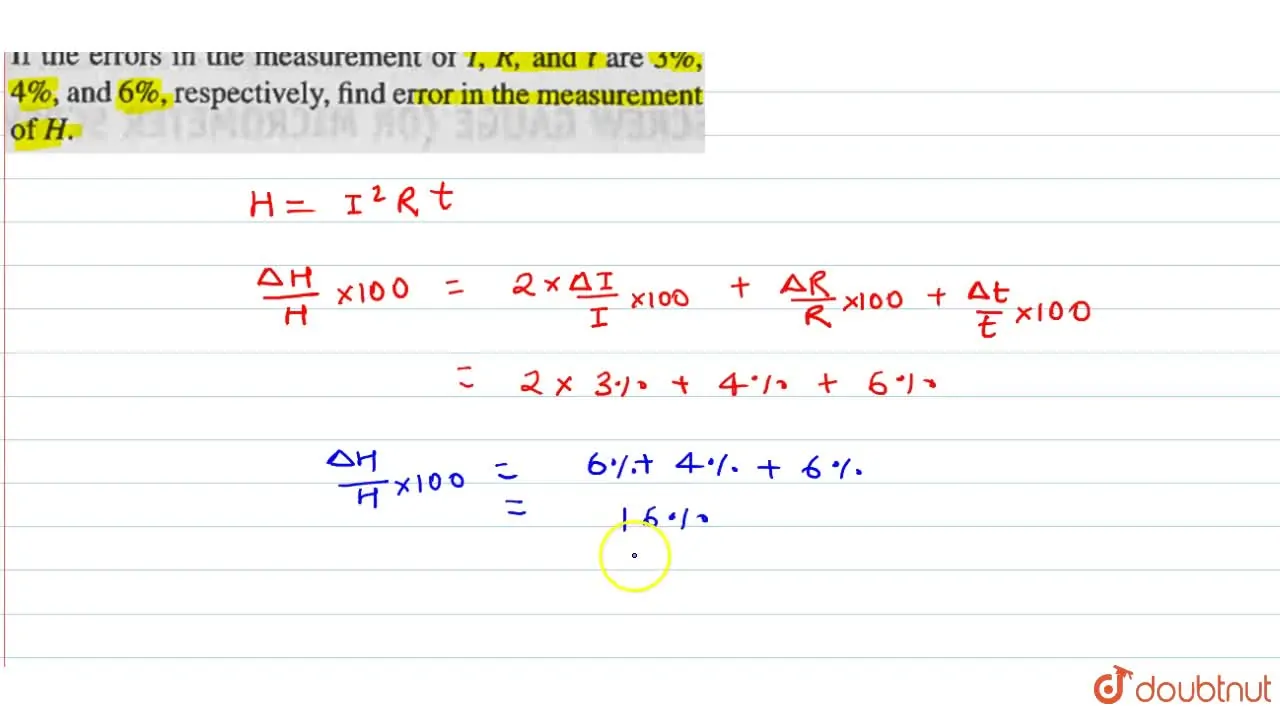 If the errors in the measurement of I, R, and t are 3%,
4%, and 6%, respectively, find error in the measurement
of H.
H = I² R t
ΔH/H ×100 = 2 × ΔI/I ×100 + ΔR/R ×100 + Δt/t ×100
= 2 × 3% + 4% + 6%
ΔH/H ×100 = 6% + 4% + 6%
= 16%
doubtnut